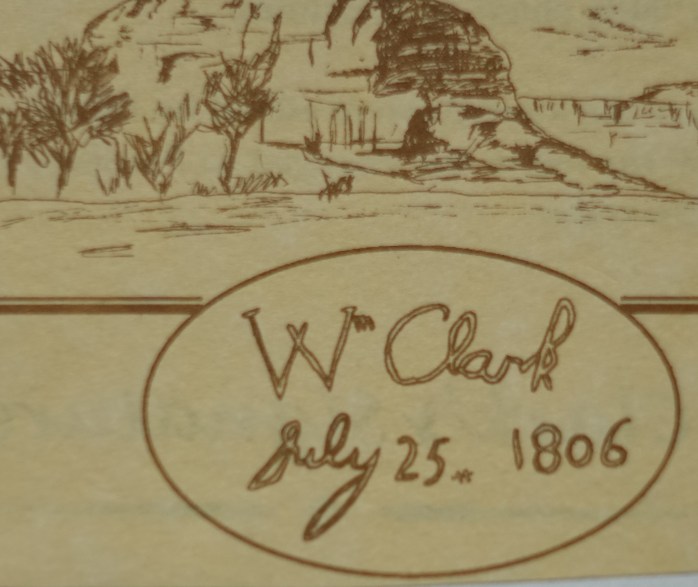 Wm Clark
July 25. 1806